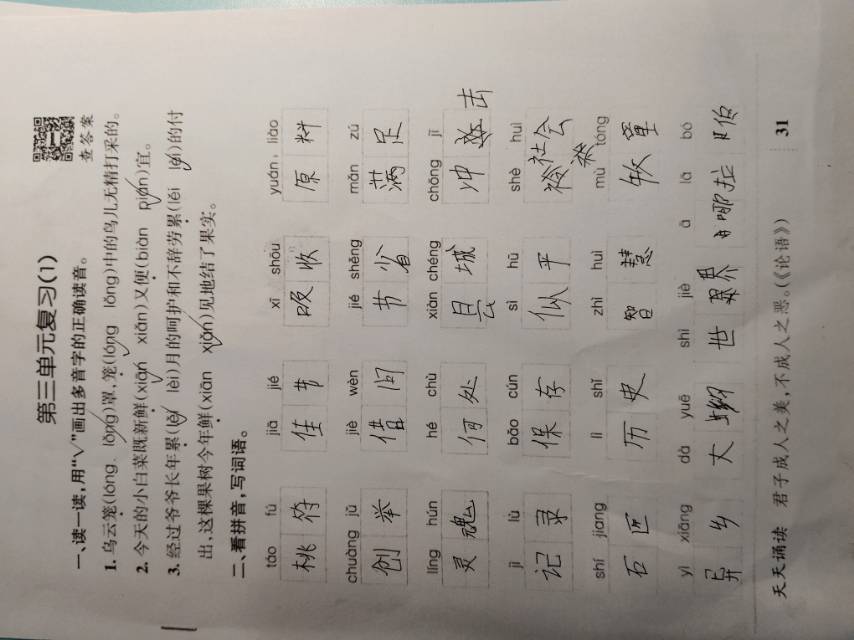 第三单元复习(1)
查答案
一、读一读,用“√”画出多音字的正确读音。
1. 乌云笼(lóng lǒng)罩,笼(lóng lǒng)中的鸟儿无精打采的。
2. 今天的小白菜既新鲜(xiān xiǎn)又便(biàn pián)宜。
3. 经过爷爷长年累(lěi lèi)月的呵护和不辞劳累(lěi lèi)的付
出,这棵果树今年鲜(xiān xiǎn)见地结了果实。
二、看拼音,写词语。
táo fú jiā jié xī shōu yuán liào
桃符 佳节 吸收 原料
chuàng jǔ jiè wèn jié shěng mǎn zú
创举 借问 节省 满足
líng hún hé chù xiàn chéng chōng jī
灵魂 何处 县城 冲击
jì lù bǎo cún sì hū shè huì
记录 保存 似乎 社会
shí jiang lì shǐ zhì huì mù tóng
石匠 历史 智慧 牧童
yì xiāng dà yuē shì jiè ā lā bó
异乡 大 世界 拉
天天诵读 君子成人之美,不成人之恶。(《论语》)
31